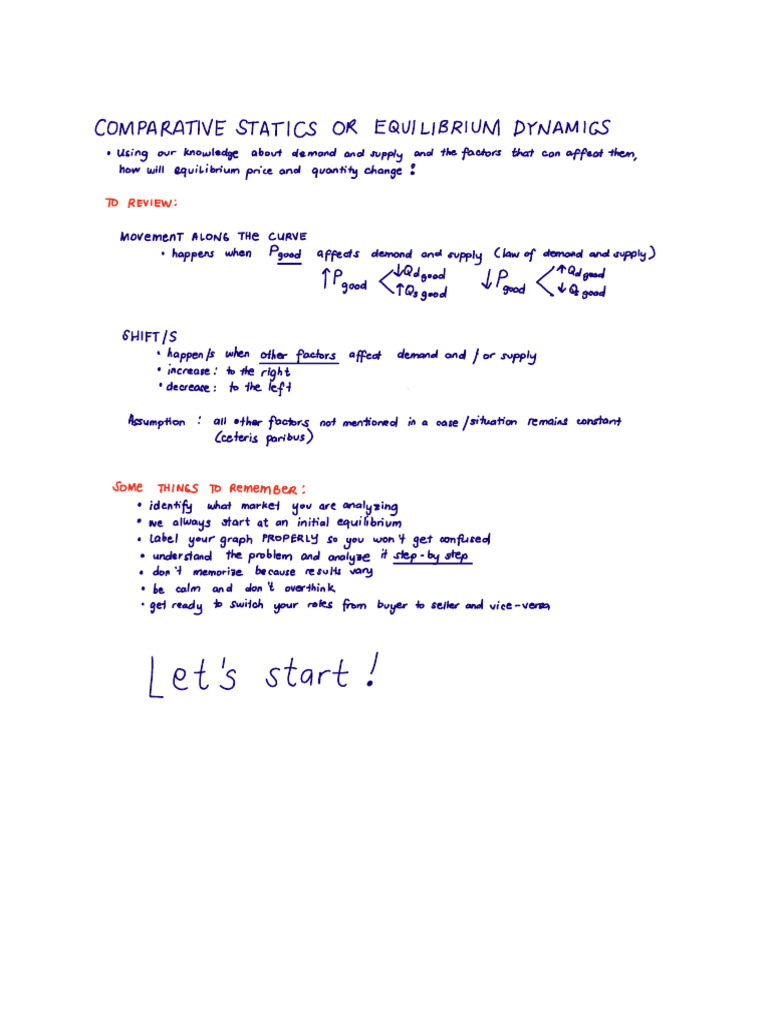 COMPARATIVE STATICS OR EQUILIBRIUM DYNAMICS
• Using our knowledge about demand and supply and the factors that can affect them,
how will equilibrium price and quantity change?
TO REVIEW:
MOVEMENT ALONG THE CURVE
• happens when Pgood affects demand and supply (law of demand and supply)
↑Pgood < ↓Qd good ↑Qs good ↓Pgood < ↑Qd good ↓Qs good
SHIFT/S
• happen/s when other factors affect demand and/or supply
• increase: to the right
• decrease: to the left
Assumption: all other factors not mentioned in a case/situation remains constant
(ceteris paribus)
SOME THINGS TO REMEMBER:
• identify what market you are analyzing
• we always start at an initial equilibrium
• Label your graph PROPERLY so you won't get confused
• understand the problem and analyze it step-by step
• don't memorize because results vary
• be calm and don't overthink
• get ready to switch your roles from buyer to seller and vice-versa
Let's start!